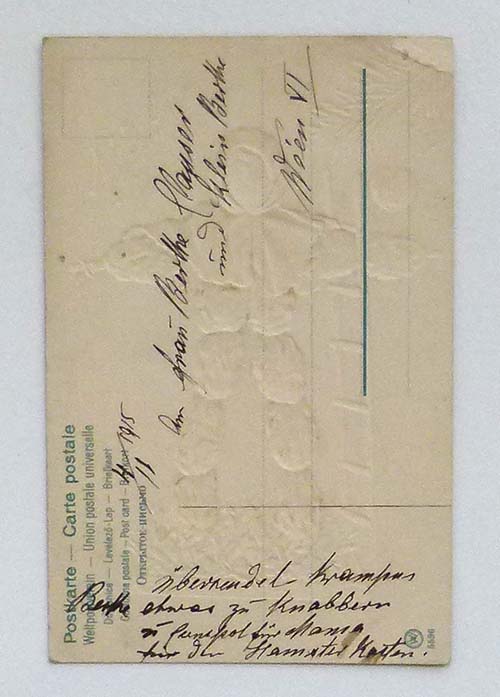 Postkarte — Carte postale
Weltpostverein — Union postale universelle
Dopisnice — Levelező-Lap — Briefkaart
Cartolina postale — Post card — Brefkort
Открытое письмо
1915
An Frau Berthe
und Klein Berthe
Wien VI
Berthe
übersendet Krampus
etwas zu Knabbern
u für Mama
für den Karten.
5596